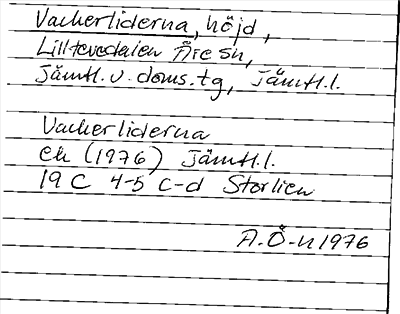 Vackerliderna, höjd,
Lilltevedalen Åre sn,
Jämtl. v. doms. tg, Jämtl. l.
Vackerliderna
ek (1976) Jämtl. l.
19 C 4-5 c-d Storlien
A. Ö-n 1976